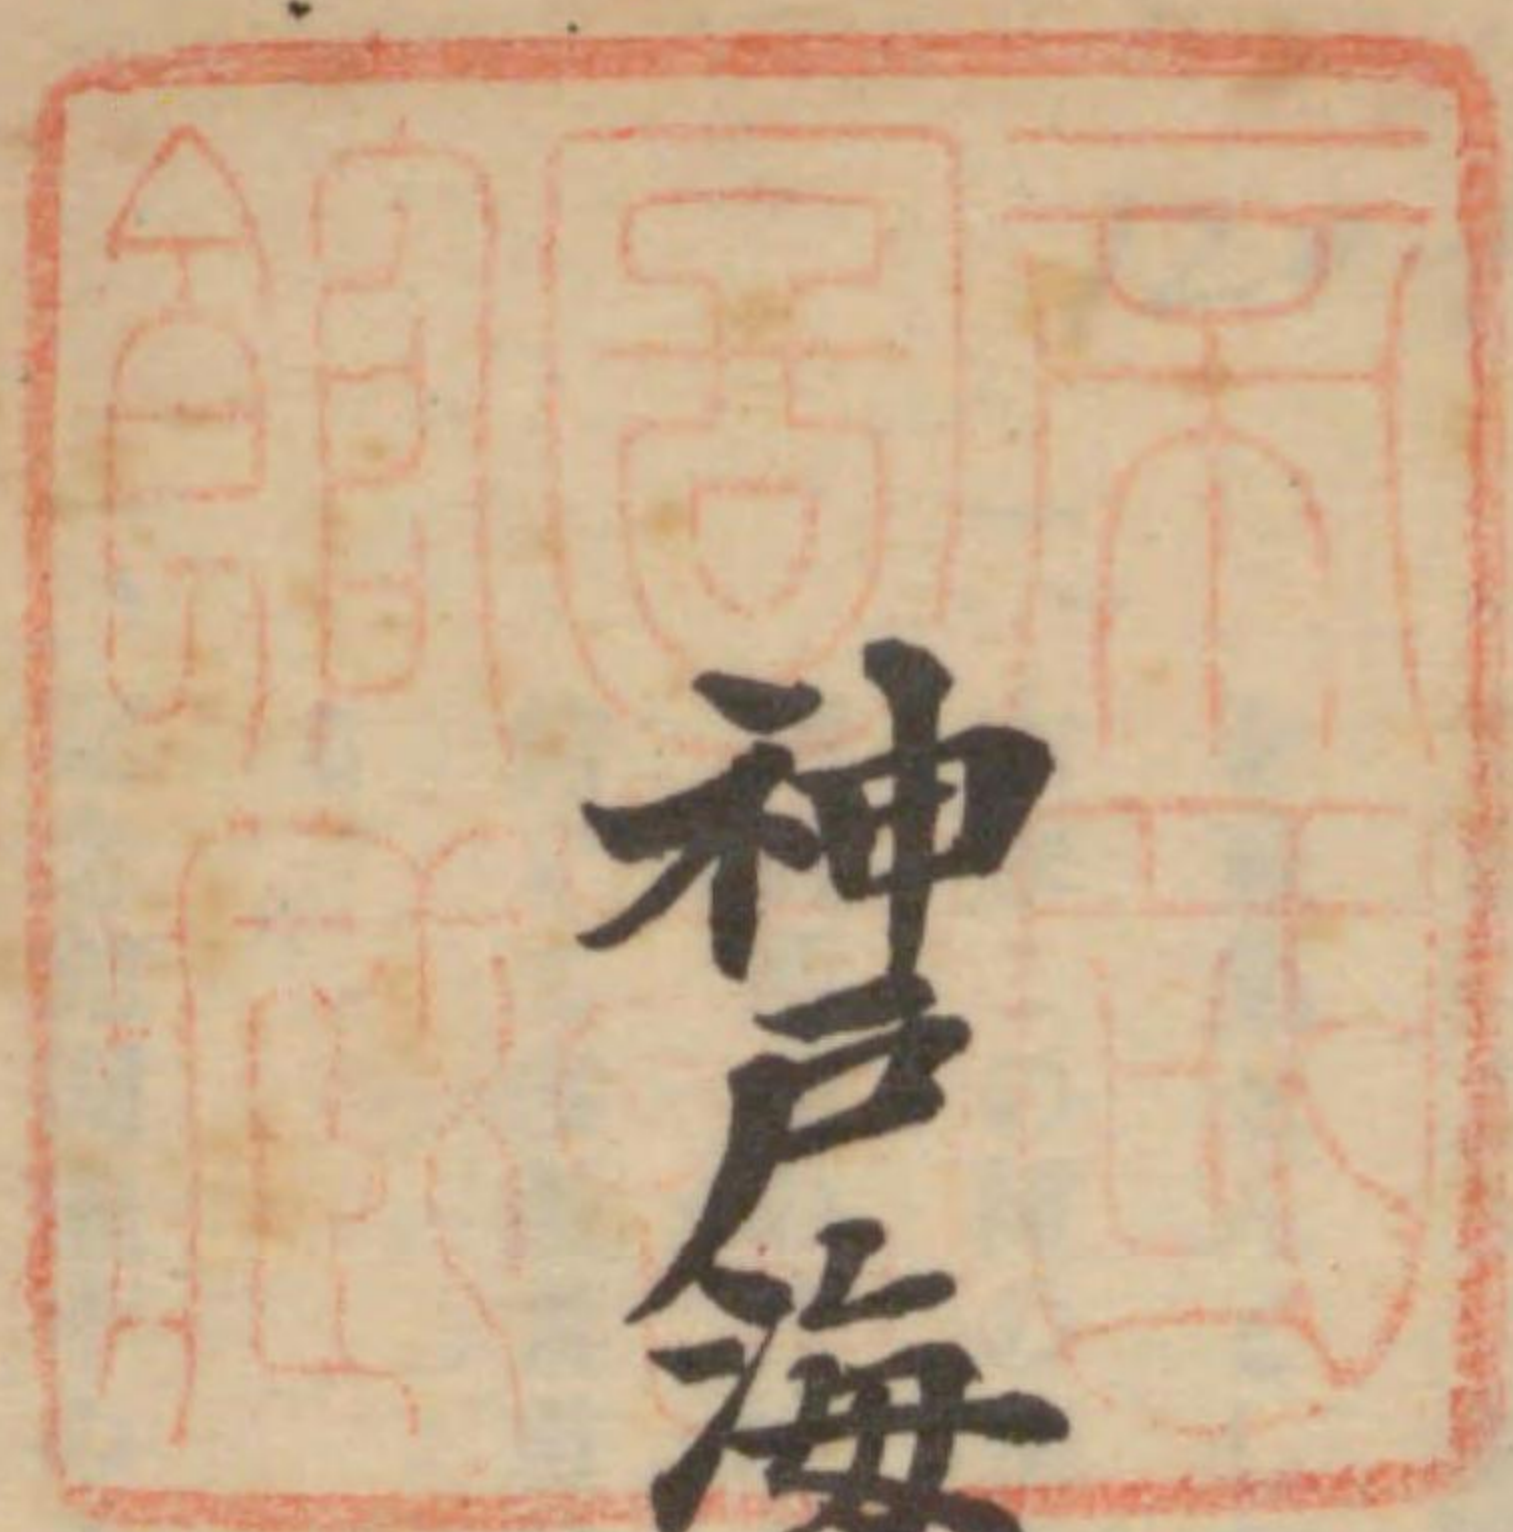 帝國
圖書
館藏
神戸海